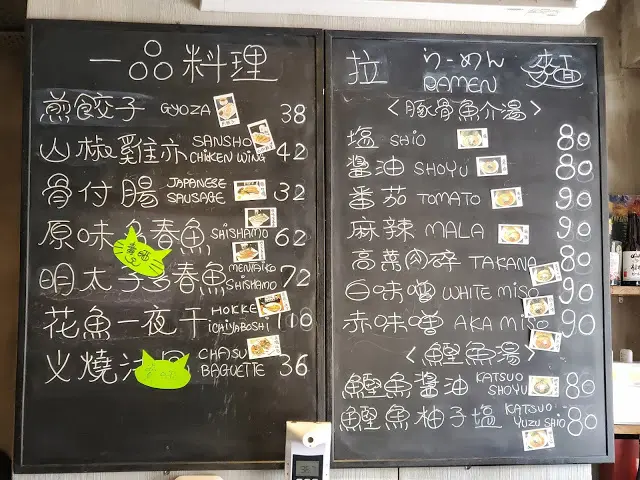 一品料理
煎餃子 GYOZA 38
山椒雞亦 SANSHO CHICKEN WING 42
骨付腸 JAPANESE SAUSAGE 32
原味多春魚 SHISHAMO 62
明太子多春魚 MENTAIKO SHISHAMO 72
花魚一夜干 HOKKE ICHIYABOSHI 110
火燒法 CHASU BAGUETTE 36
拉 らーめん RAMEN 麵
<豚骨魚介湯>
塩 SHIO 80
醬油 SHOYU 80
番茄 TOMATO 90
麻辣 MALA 90
高菜肉碎 TAKANA 80
白味噌 WHITE MISO 90
赤味噌 AKA MISO 90
<鰹魚湯>
鰹魚醬油 KATSUO SHOYU 80
鰹魚柚子塩 KATSUO YUZU SHIO 80